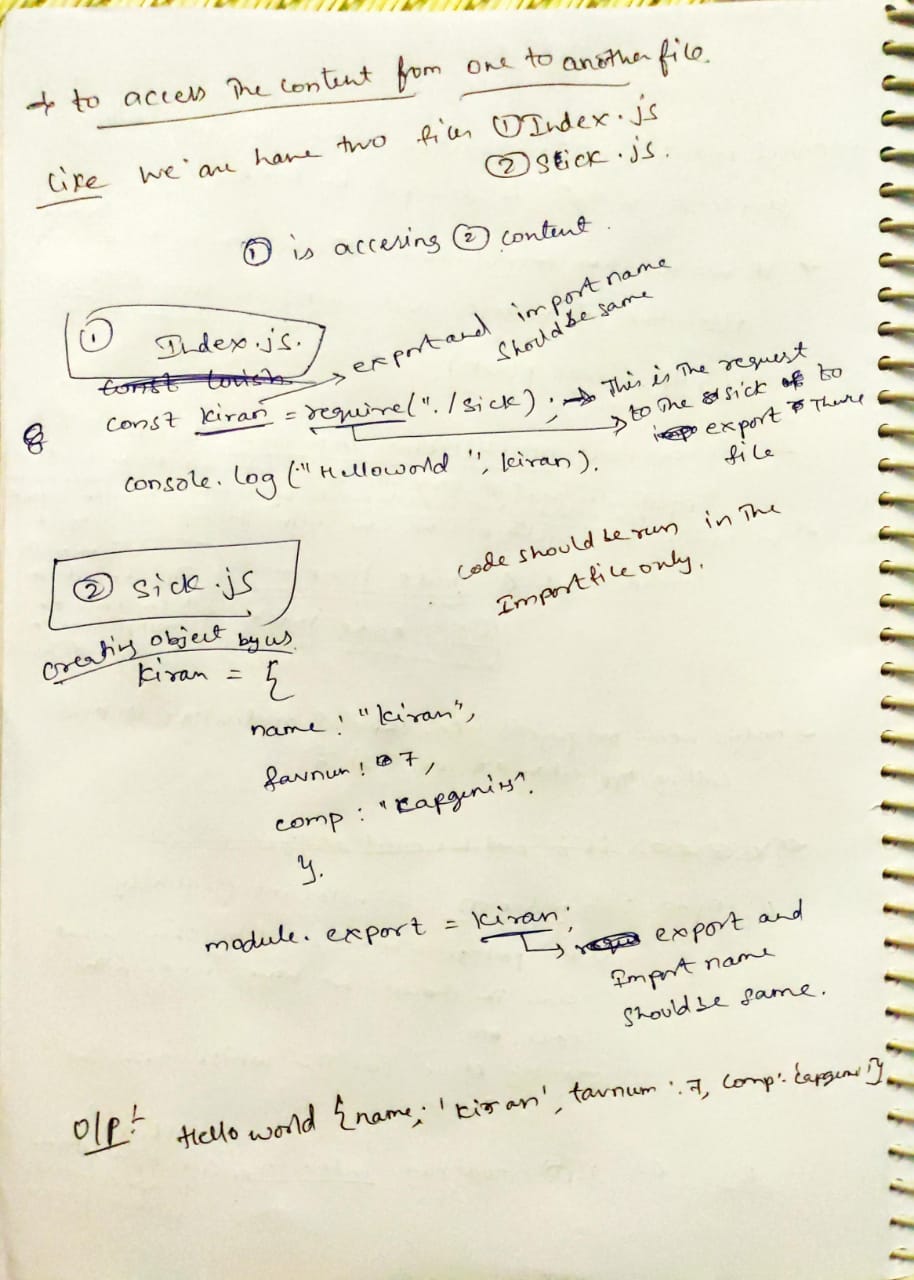 → to access The content from one to another file.
like we are have two files ① Index.js
② Slick.js.
① is accesing ② content.
① Index.js.
const kiran = require("./sick);
→ export and import name
Should be same
→ This is The request
to The sick to
export There
file
console.log ("Helloworld", kiran).
code should be run in The
Import file only.
② sick.js
Creating object by us.
kiran = {
name: "kiran",
favnum: 7,
comp: "Capgenius".
}.
module.export = kiran;
→ export and
Import name
Should be same.
O/P:- Hello world {name: 'kiran', favnum: 7, comp: